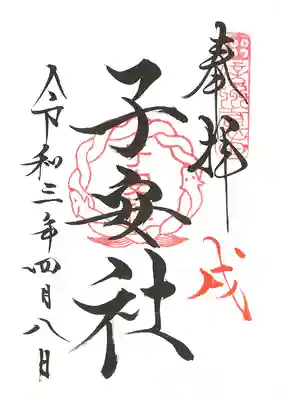 奉拝
戌
子安社
令和三年四月八日